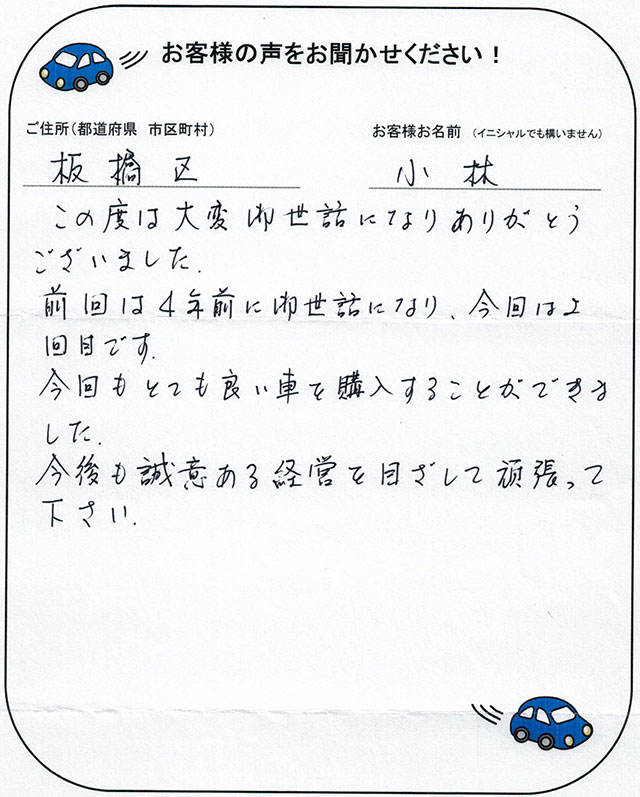 お客様の声をお聞かせください！
ご住所（都道府県 市区町村）
お客様お名前 （イニシャルでも構いません）
板橋区
小林
この度は大変御世話になりありがとう
ございました.
前回は4年前に御世話になり、今回は2
回目です.
今回もとても良い車を購入することができま
した.
今後も誠意ある経営を目ざして頑張って
下さい.